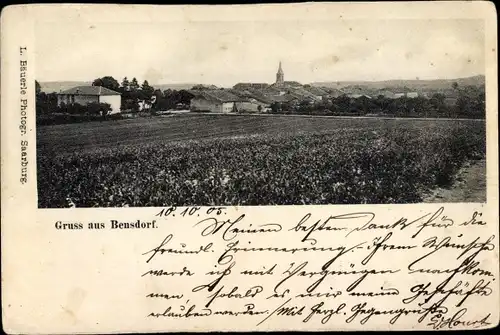 L. Bäuerle Photogr. Saarburg.
Gruss aus Bensdorf.
10.10.05.
Meinen besten Dank für die
freundl. Erinnerung. Ihrem Wunsche
werde ich mit Vergnügen nachkom-
men, sobald es mir meine Geschäfte
erlauben werden. Mit herzl. Gegengrüße